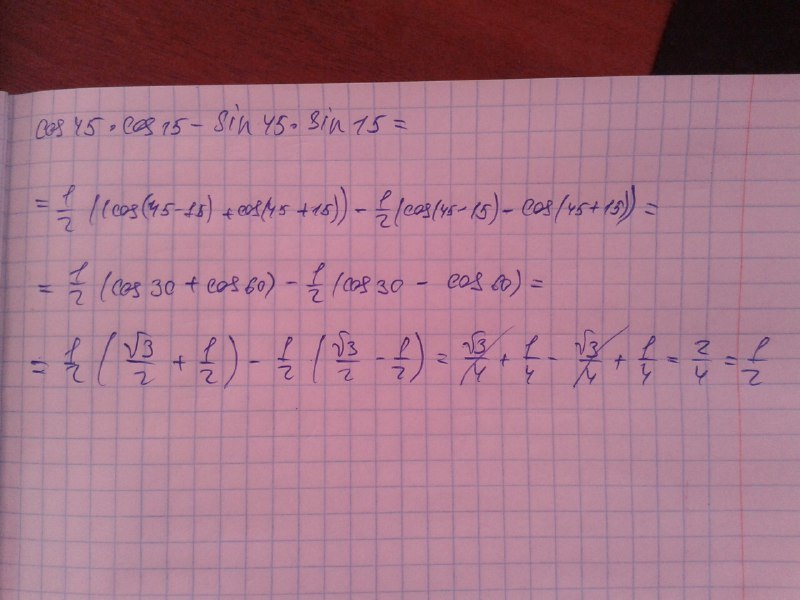 cos 45 · cos 15 - sin 45 · sin 15 =
= 1/2 ((cos(45-15) + cos(45+15)) - 1/2 (cos(45-15) - cos(45+15)) =
= 1/2 (cos 30 + cos 60) - 1/2 (cos 30 - cos 60) =
= 1/2 (√3/2 + 1/2) - 1/2 (√3/2 - 1/2) = √3/4 + 1/4 - √3/4 + 1/4 = 2/4 = 1/2